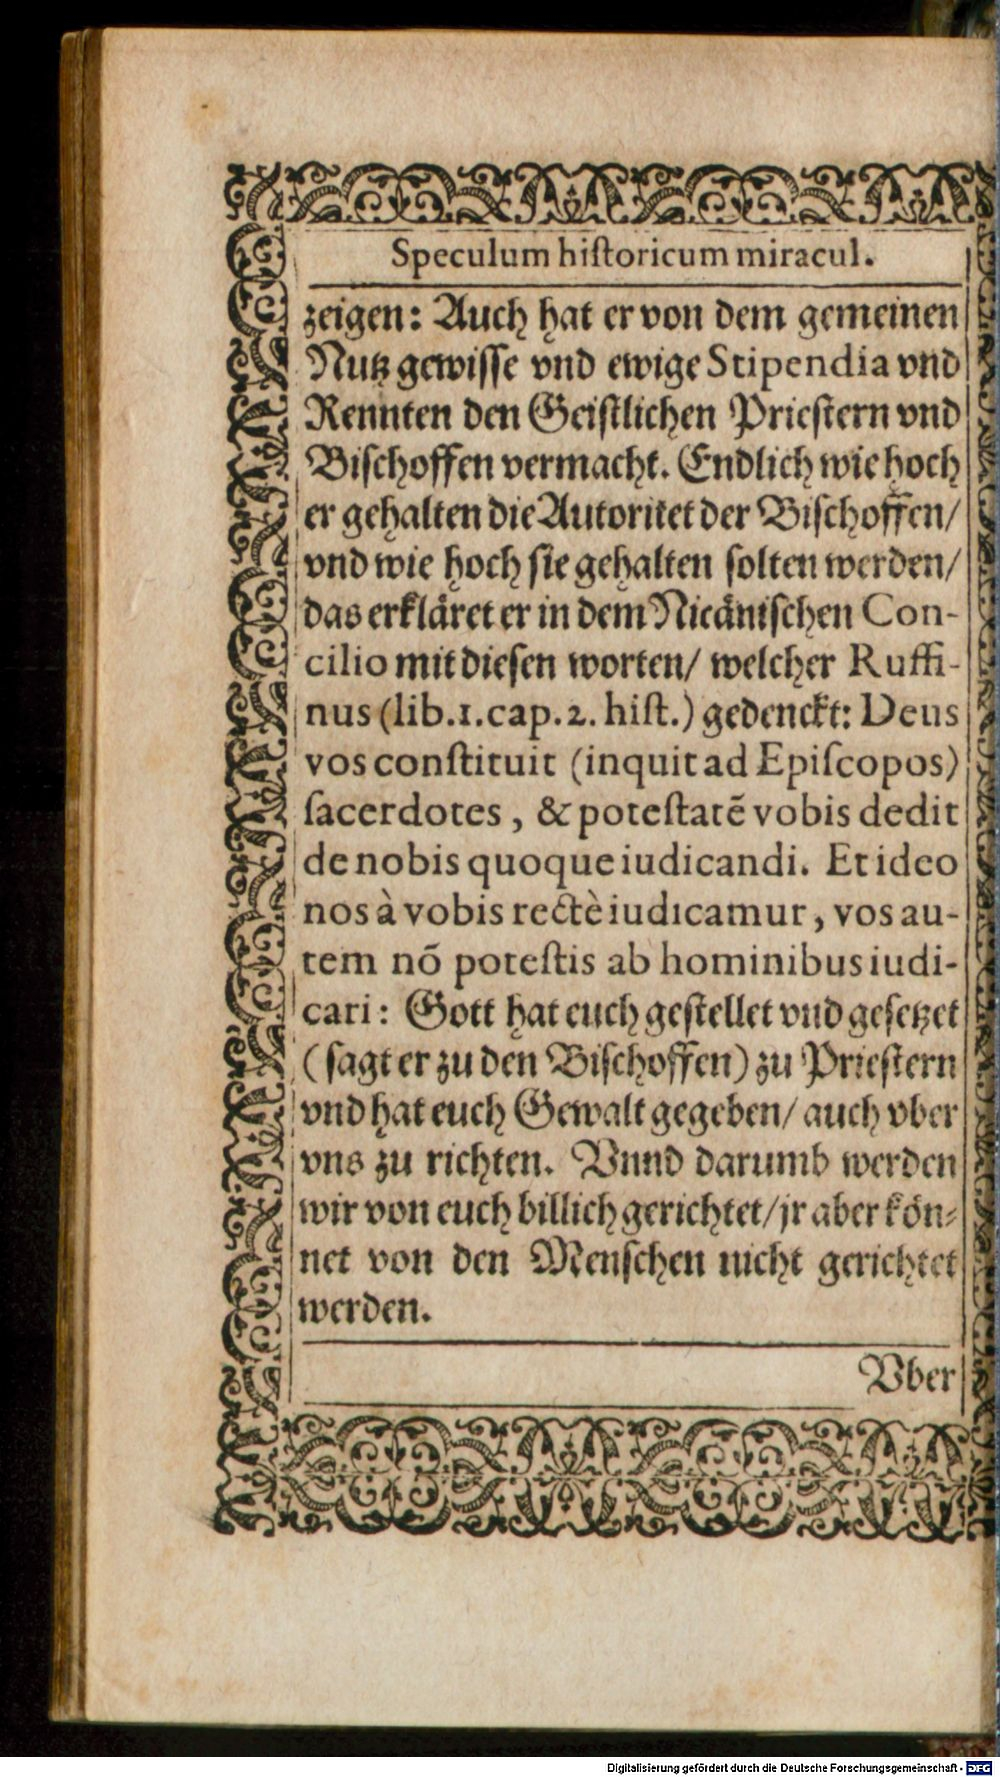 Speculum hiſtoricum miracul.
zeigen: Auch hat er von dem gemeinen
Nutz gewiſſe vnd ewige Stipendia vnd
Rennten den Geiſtlichen Prieſtern vnd
Biſchoffen vermacht. Endlich wie hoch
er gehalten die Autoritet der Biſchoffen/
vnd wie hoch ſie gehalten ſolten werden/
das erkläret er in dem Nicäniſchen Con-
cilio mit dieſen worten/ welcher Ruffi-
nus (lib.1.cap.2. hiſt.) gedenckt: Deus
vos conſtituit (inquit ad Epiſcopos)
ſacerdotes, & poteſtatē vobis dedit
de nobis quoque iudicandi. Et ideo
nos à vobis rectè iudicamur, vos au-
tem nō poteſtis ab hominibus iudi-
cari: Gott hat euch geſtellet vnd geſetzet
(ſagt er zu den Biſchoffen) zu Prieſtern
vnd hat euch Gewalt gegeben/ auch vber
vns zu richten. Vnnd darumb werden
wir von euch billich gerichtet/ jr aber kön-
net von den Menſchen nicht gerichtet
werden.
Vber
Digitalisierung gefördert durch die Deutsche Forschungsgemeinschaft - DFG